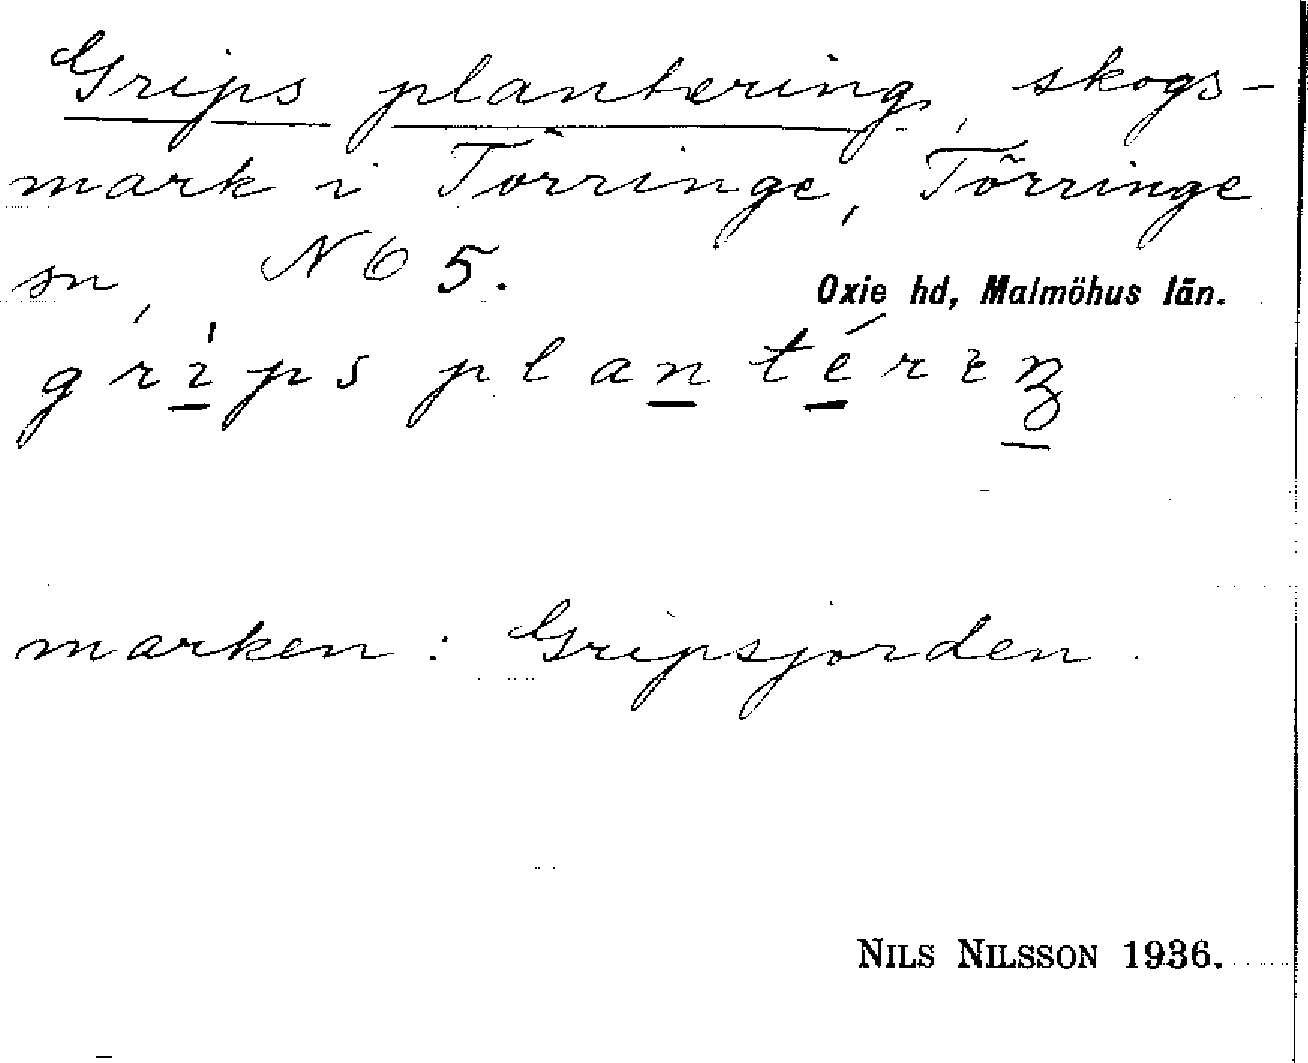 Grips plantering, skogs-
mark i Törringe, Törringe
sn, N 6 5.
Oxie hd, Malmöhus län.
grips plantériŋ
marken: Gripsjorden.
NILS NILSSON 1936.